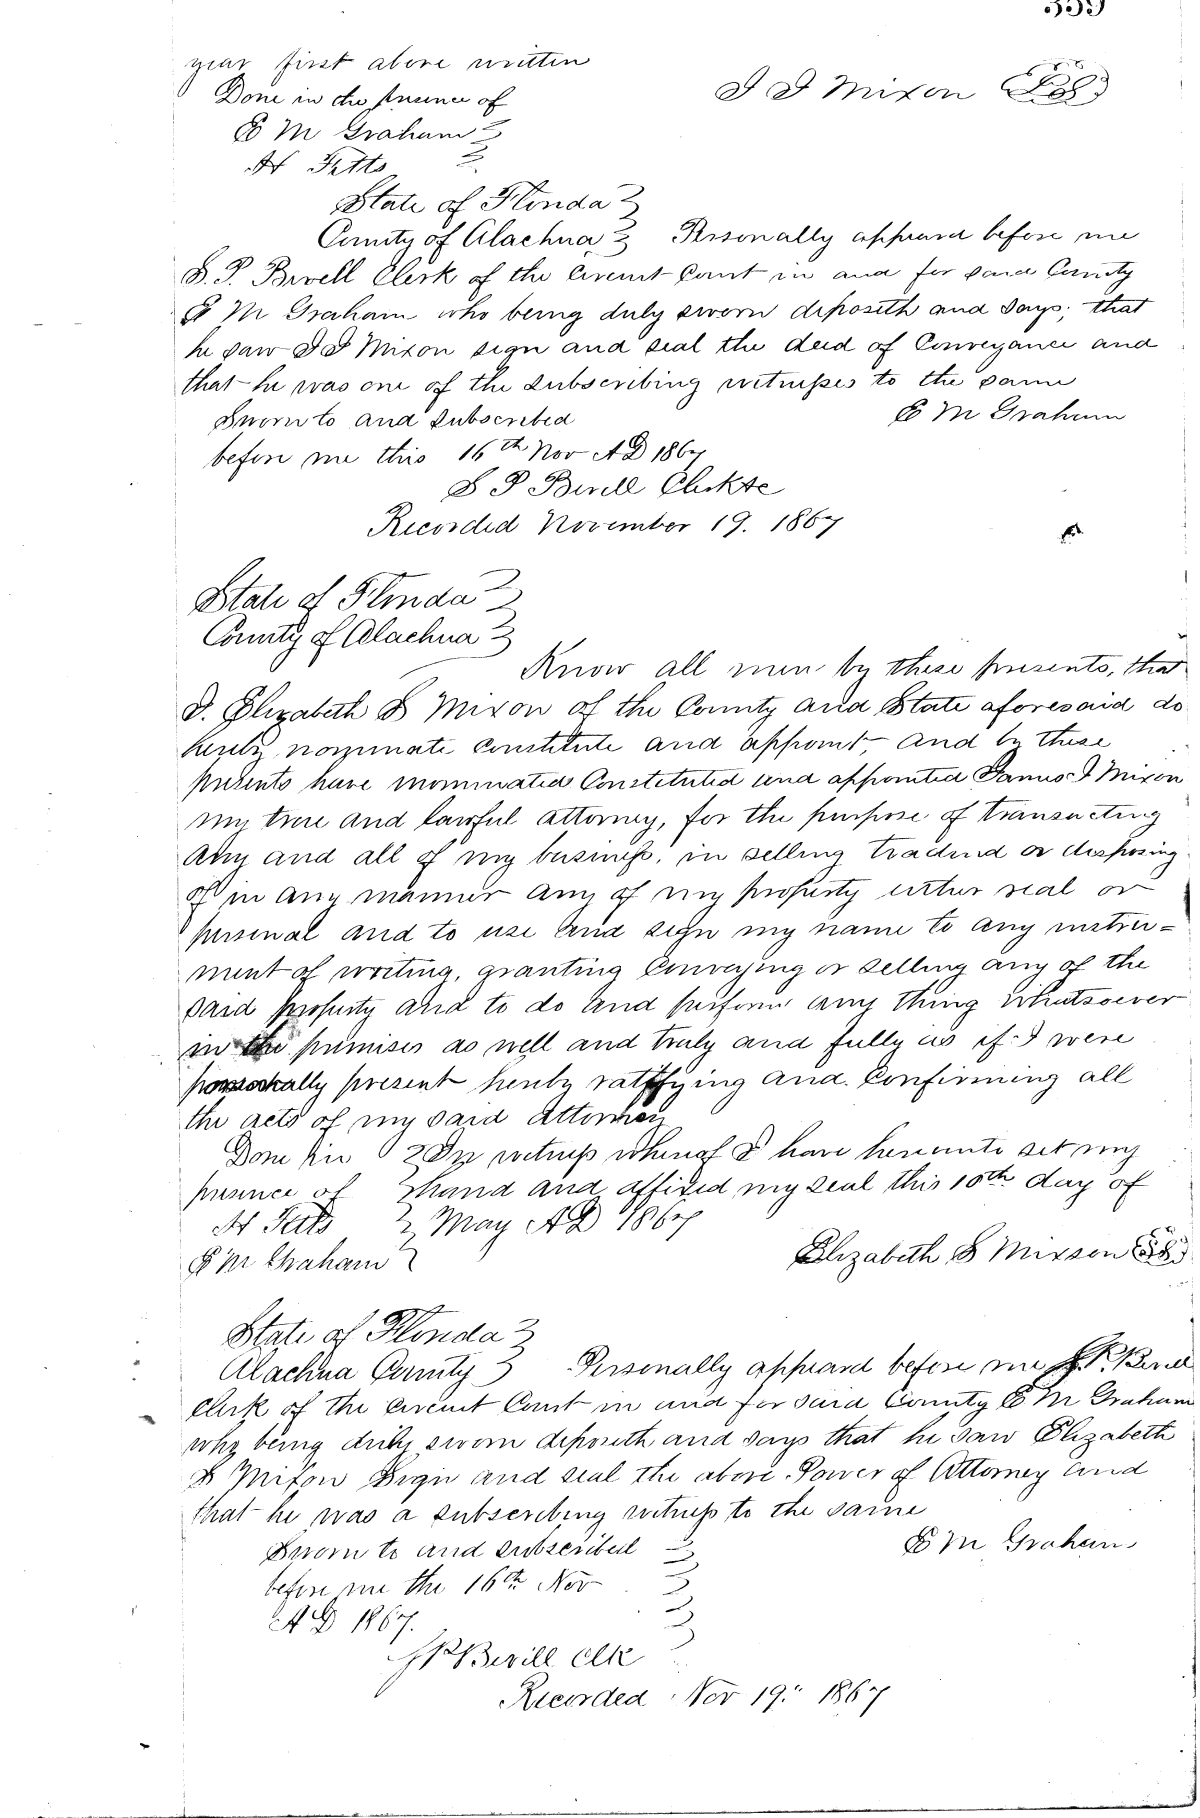 359
year first above written
Done in the presence of
J J Mixon
E M Graham
State of Florida
County of Alachua Personally appeared before me
S. P. Bevill Clerk of the Circuit Court in and for said County
E M Graham who being duly sworn deposeth and says; that
he saw J J Mixon sign and seal the deed of Conveyance and
that he was one of the subscribing witnesses to the same
Sworn to and subscribed
E M Graham
before me this 16th Nov AD 1867
S P Bevill
Recorded November 19. 1867
State of Florida
County of Alachua
Know all men by these presents, that
I. Elizabeth S Mixon of the County and State aforesaid do
hereby nominate constitute and appoint, and by these
presents have nominated Constituted and appointed James J Mixon
my true and lawful attorney, for the purpose of transacting
any and all of my business, in selling tradind or disposing
of in any manner any of my property either real or
personal and to use and sign my name to any instru=
ment of writing, granting Conveying or selling any of the
said property and to do and perform any thing whatsoever
in the premises as well and truly and fully as if I were
present hereby ratifying and Confirming all
the acts of my said attorney
Done in In witness whereof I have hereunto set my
presence of hand and affixed my seal this 10th day of
May AD 1867
E M Graham
Elizabeth S Mixson
State of Florida
Alachua County Personally appeard before me S. P. Bevill
Clerk of the Circuit Court in and for said County E M Graham
who being duly sworn deposeth and says that he saw Elizabeth
S Mixon Sign and seal the above Power of Attorney and
that he was a subscribing witness to the same
E M Graham
Sworn to and subscribed
before me the 16th Nov
AD 1867.
S P Bevill Clk
Recorded Nov 19. 1867